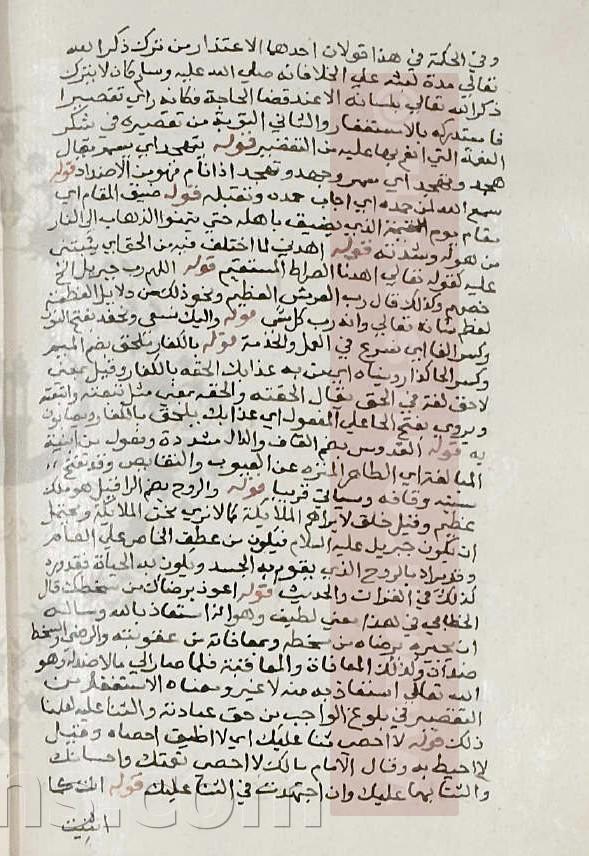 وفي الحكمة في هذا قولان احدها الاعتذار من ترك ذكر الله
تعالي مدة لبثه علي الخلا فانه صلي الله عليه وسلم كان لا يترك
ذكر الله تعالي بلسانه الا عند قضا الحاجة فكانه راي تقصيرا
فاستدركه بالاستغفار والثاني التوبة من تقصيره في شكر
النعمة التي انعم بها عليه من التقصير قوله يتهجد اي سهر يقال
هجد وتهجد اي سهر وهجد وتهجد اذا نام فهو من الاضداد قوله
سمع الله لمن حمده اي اجاب حمده وتقبله قوله ضيق المقام اي
مقام يوم القيمة الذي يضيق باهله حتي يتمنوا الذهاب الي النار
من هوله وشدته قوله اهدني لما اختلف فيه من الحق اي ثبتني
عليه كقوله تعالي اهدنا الصراط المستقيم قوله اللهم رب جبريل الخ
خصهم وكذلك قال رب العرش العظيم ونحو ذلك من دلايل العظمة
لعظم شانه تعالي وانه رب كل شي قوله واليك نسعي ونحفد بفتح النون
وكسر الفا اي نسرع في العمل والخدمة قوله بالكفار ملحق بضم الميم
وكسر الحا كذا رويناه اي من به عذابك الحقه بالكفار وقيل بمعني
لاحق لغة في الحق يقال الحقته والحقه بمعني مثل تبعته واتبعته
ويروي بفتح الحا علي المفعول اي عذابك يلحق بالكفار ويصابون
به قوله القدوس بضم القاف والدال مشددة وفعول من ابنية
المبالغة اي الطاهر المنزه عن العيوب والنقايص وقد تفتح
سينه وقافه وسياتي قريبا قوله والروح بضم الرا قيل هو ملك
عظيم وقيل خلق لا يراهم الملايكة كما لا نري نحن الملايكة ويحتمل
ان يكون جبريل عليه السلام فيكون من عطف الخاص علي العام
وقد يراد بالروح الذي يقوم به الجسد ويكون به الحياة فقد ورد
كذلك في القران والحديث قوله اعوذ برضاك من سخطك قال
الخطابي في هذا معني لطيف وهو انه استعاذ بالله وساله
ان يجيره برضاه من سخطه وبمعافاته من عقوبته والرضي والسخط
ضدان وكذلك المعافاة والمعاقبة فلما صار الي ما لا ضد له وهو
الله تعالي استعاذ به منه لا غير ومعناه الاستغفار من
التقصير في بلوغ الواجب من حق عبادته والثنا عليه
ذلك قوله لا احصي ثنا عليك اي لا اطيق احصاه وقيل
لا احيط به وقال الامام مالك لا احصي نعمتك واحسانك
والثنا بها عليك وان اجتهدت في الثنا عليك قوله انت كما
اثنيت
ns.com